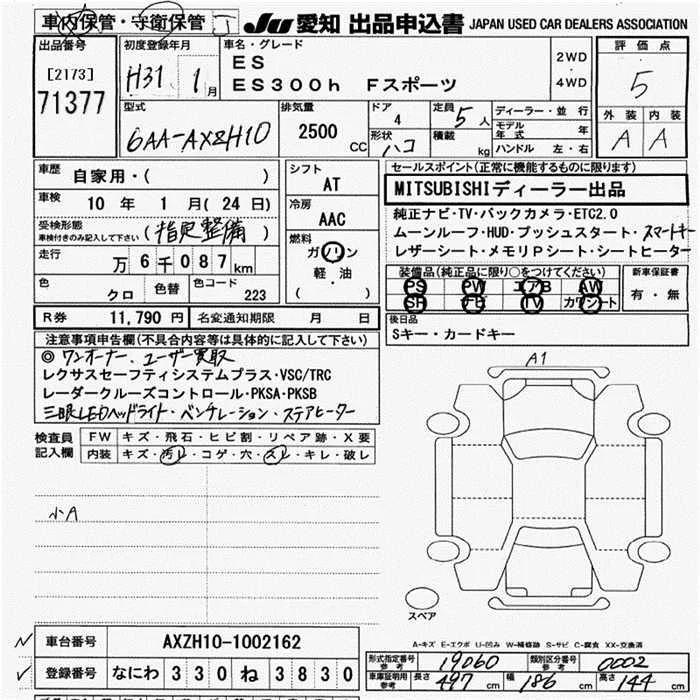 車内保管・守衛保管
JU 愛知 出品申込書 JAPAN USED CAR DEALERS ASSOCIATION
出品番号
[2173]
71377
初度登録年月
H31年 1月
車名・グレード
ES
ES300h Fスポーツ
2WD
・
4WD
評価点
5
外装 内装
A A
型式
6AA-AXZH10
排気量
2500
CC
ドア
4
形状
ハコ
定員
5人
積載
kg
ディーラー・並行
モデル年式 年
ハンドル 左・右
車歴
自家用・( )
車検
10 年 1 月 (24 日)
受検形態
車検付きのみ記入して下さい
(指定整備)
走行
万 6千 0 8 7 km
色
クロ
色替
色コード
223
シフト
AT
冷房
AAC
燃料
ガソリン
軽・油
( )
セールスポイント(正常に機能するものに限ります)
MITSUBISHIディーラー出品
純正ナビ・TV・バックカメラ・ETC2.0
ムーンルーフ・HUD・プッシュスタート・スマートキー
レザーシート・メモリPシート・シートヒーター
装備品(純正品に限り○をつけてください)
PS PW エアB AW
SR TV カワシート
新車保証書
有・無
R券 11,790 円
名変通知期限 月 日
後日品
Sキー・カードキー
注意事項申告欄(不具合内容等は具体的に記入して下さい)
◎ ワンオーナー、ユーザー買取
レクサスセーフティシステムプラス・VSC/TRC
レーダークルーズコントロール・PKSA・PKSB
三眼LEDヘッドライト・ベンチレーション・ステアヒーター
検査員
記入欄
FW キズ・飛石・ヒビ割・リペア跡・X要
内装 キズ・汚レ・コゲ・穴・スレ・キレ・破レ
小A
A1
スペア
A-キズ E-エクボ U-凹み W-補修跡 S-サビ C-腐食 XX-交換済
車台番号 AXZH10-1002162
登録番号 なにわ 3 3 0 ね 3 8 3 0
形式指定番号
参考
19060
類別区分番号
参考
0002
車庫証明用
参考
長さ 497 cm 幅 186 cm 高さ 144 cm